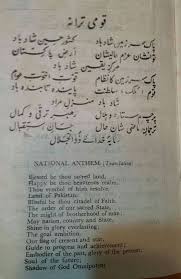 قومی ترانہ
پاک سرزمین شاد باد کشور حسین شاد باد
تو نشان عزم عالیشان ارض پاکستان
مرکز یقین شاد باد
پاک سرزمین کا نظام قوت اخوت عوام
قوم، ملک، سلطنت پائندہ تابندہ باد
شاد باد منزل مراد
پرچم ستارہ و ہلال رہبر ترقی و کمال
ترجمان ماضی شان حال جان استقبال
سایۂ خدائے ذوالجلال
NATIONAL ANTHEM (Translation)
Blessed be thou sacred land,
Happy be thou bounteous realm,
Thou symbol of high resolve,
Land of Pakistan.
Blessed be thou citadel of Faith.
The order of our sacred State,
The might of brotherhood of
May nation, country and State,
Shine in glory everlasting;
The goal ambition.
Our flag of crescent and star,
Guide to progress and achievement;
Embodier of the past, glory of the present,
Soul of the future;
Shadow of God Omnipotent